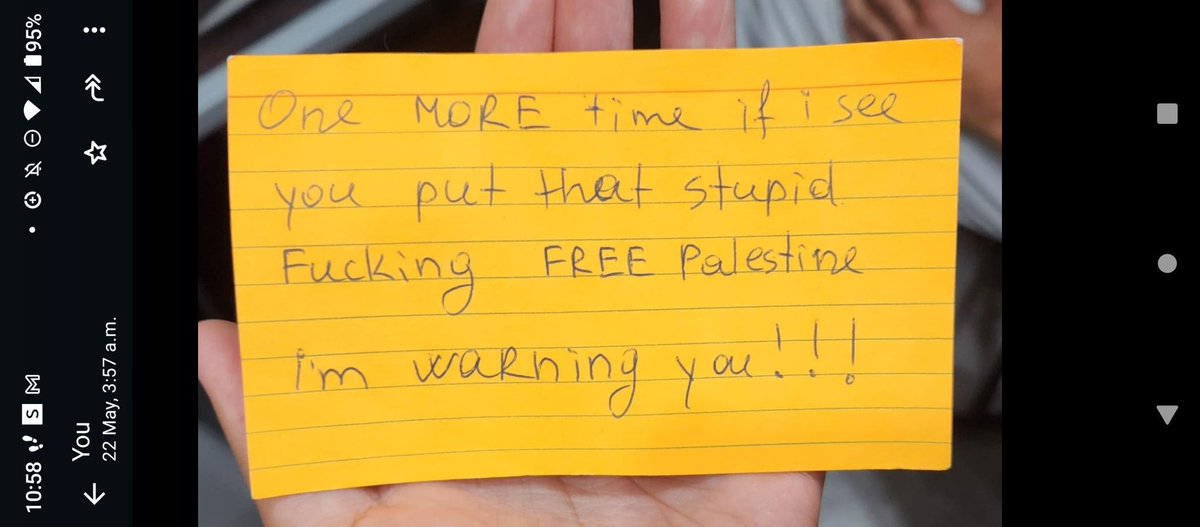 10:58 S M 95%
You
22 May, 3:57 a.m.
One MORE time if i see
you put that stupid
Fucking FREE Palestine
i'm waRning you!!!